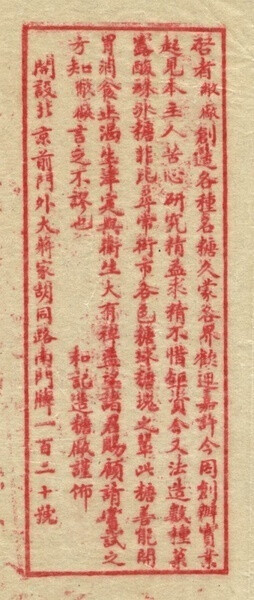 啓者敝廠創造各種名糖久蒙各界歡迎嘉許今因創辦實業
起見本主人苦心研究精益求精不惜鉅資今又法造數種菓
露酸冰糖非比尋常街市各色糖球糖塊之輩此糖善能開
胃消食止渴生津寔與衛生大有裨益望諸君賜顧請嘗試之
方知敝廠言之不謬也　和記造糖廠謹佈
開設北京前門外大蔣家胡同路南門牌一百二十號